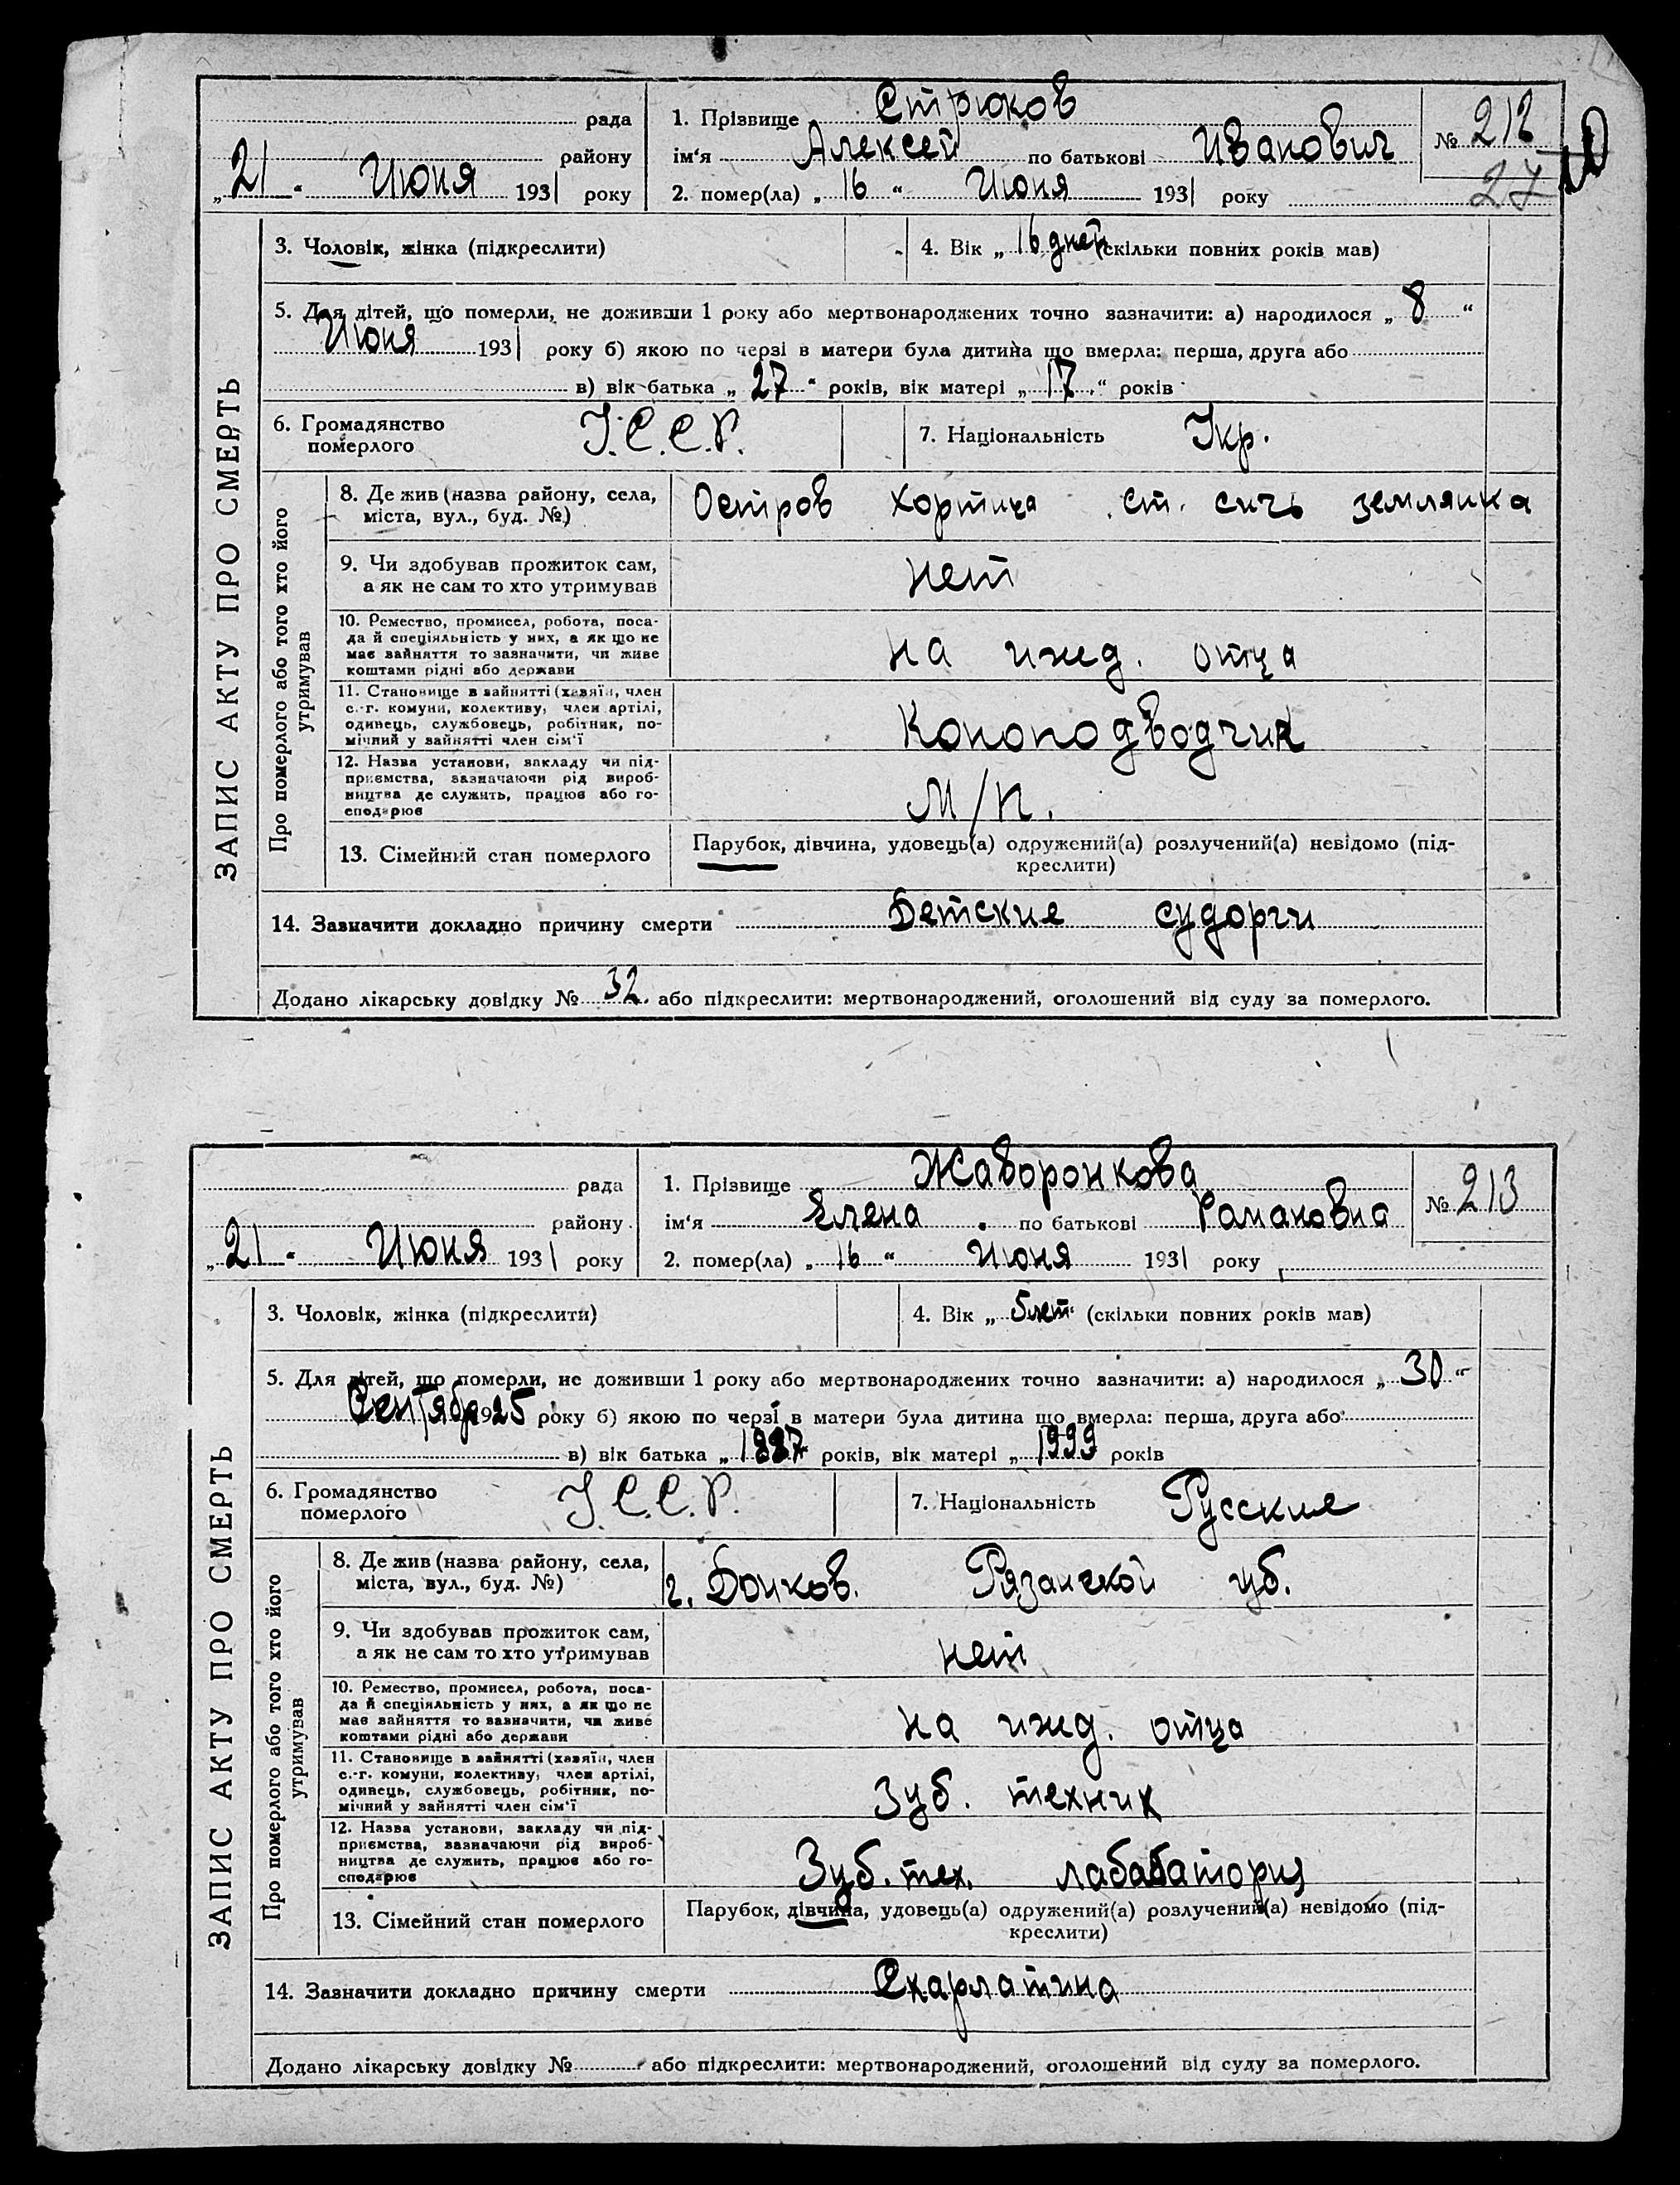 рада
районух
„21“ Июня 1931 року
1. Прізвище Стрюков
ім'я Алексей по батькові Иванович
2. помер(ла) „16“ Июня 1931 року
№ 212
27
ЗАПИС АКТУ ПРО СМЕРТЬ
3. Чоловік, жінка (підкреслити)
4. Вік „16 дней (скільки повних років мав)
5. Для дітей, що померли, не доживши 1 року або мертвонароджених точно зазначити: а) народилося „8“
Июня 1931 року б) якою по черзі в матери була дитина що вмерла: перша, друга або
в) вік батька „27“ років, вік матері „17“ років
6. Громадянство
померлого
У.С.С.Р.
7. Національність Укр.
Про померлого або того хто його
утримував
8. Де жив (назва району, села,
міста, вул., буд. №)
Остров Хортица ст. сичь землянка
9. Чи здобував прожиток сам,
а як не сам то хто утримував
нет
10. Ремество, промисел, робота, поса-
да й спеціяльність у них, а як що не
має зайняття то зазначити, чи живе
коштами рідні або держави
на ижед. отца
11. Становище в зайнятті (хазяїн, член
с.-г. комуни, колективу, член артілі,
одинець, службовець, робітник, по-
мічний у зайнятті член сім'ї
Коноподводчик
12. Назва установи, закладу чи під-
приємства, зазначаючи рід вироб-
ництва де служить, працює або го-
сподарює
М/П.
13. Сімейний стан померлого
Парубок, дівчина, удовець(а) одружений(а) розлучений(а) невідомо (під-
креслити)
14. Зазначити докладно причину смерти Детские судорги
Додано лікарську довідку № 32. або підкреслити: мертвонароджений, оголошений від суду за померлого.
рада
району
„21“ Июня 1931 року
1. Прізвище Жаворонкова
ім'я Елена по батькові Рамановна
2. помер(ла) „16“ Июня 1931 року
№ 213
ЗАПИС АКТУ ПРО СМЕРТЬ
3. Чоловік, жінка (підкреслити)
4. Вік „5 лет“ (скільки повних років мав)
5. Для дітей, що померли, не доживши 1 року або мертвонароджених точно зазначити: а) народилося „30“
Сентября 1925 року б) якою по черзі в матери була дитина що вмерла: перша, друга або
в) вік батька „1887 років, вік матері „1999 років
6. Громадянство
померлого
У.С.С.Р.
7. Національність Русские
Про померлого або того хто його
утримував
8. Де жив (назва району, села,
міста, вул., буд. №)
г. Донков. Рязанской губ.
9. Чи здобував прожиток сам,
а як не сам то хто утримував
нет
10. Ремество, промисел, робота, поса-
да й спеціяльність у них, а як що не
має зайняття то зазначити, чи живе
коштами рідні або держави
на ижед. отца
11. Становище в зайнятті (хазяїн, член
с.-г. комуни, колективу, член артілі,
одинець, службовець, робітник, по-
мічний у зайнятті член сім'ї
Зуб. техник
12. Назва установи, закладу чи під-
приємства, зазначаючи рід вироб-
ництва де служить, працює або го-
сподарює
Зуб. тех. лабабатория
13. Сімейний стан померлого
Парубок, дівчина, удовець(а) одружений(а) розлучений(а) невідомо (під-
креслити)
14. Зазначити докладно причину смерти Скарлатина
Додано лікарську довідку № або підкреслити: мертвонароджений, оголошений від суду за померлого.